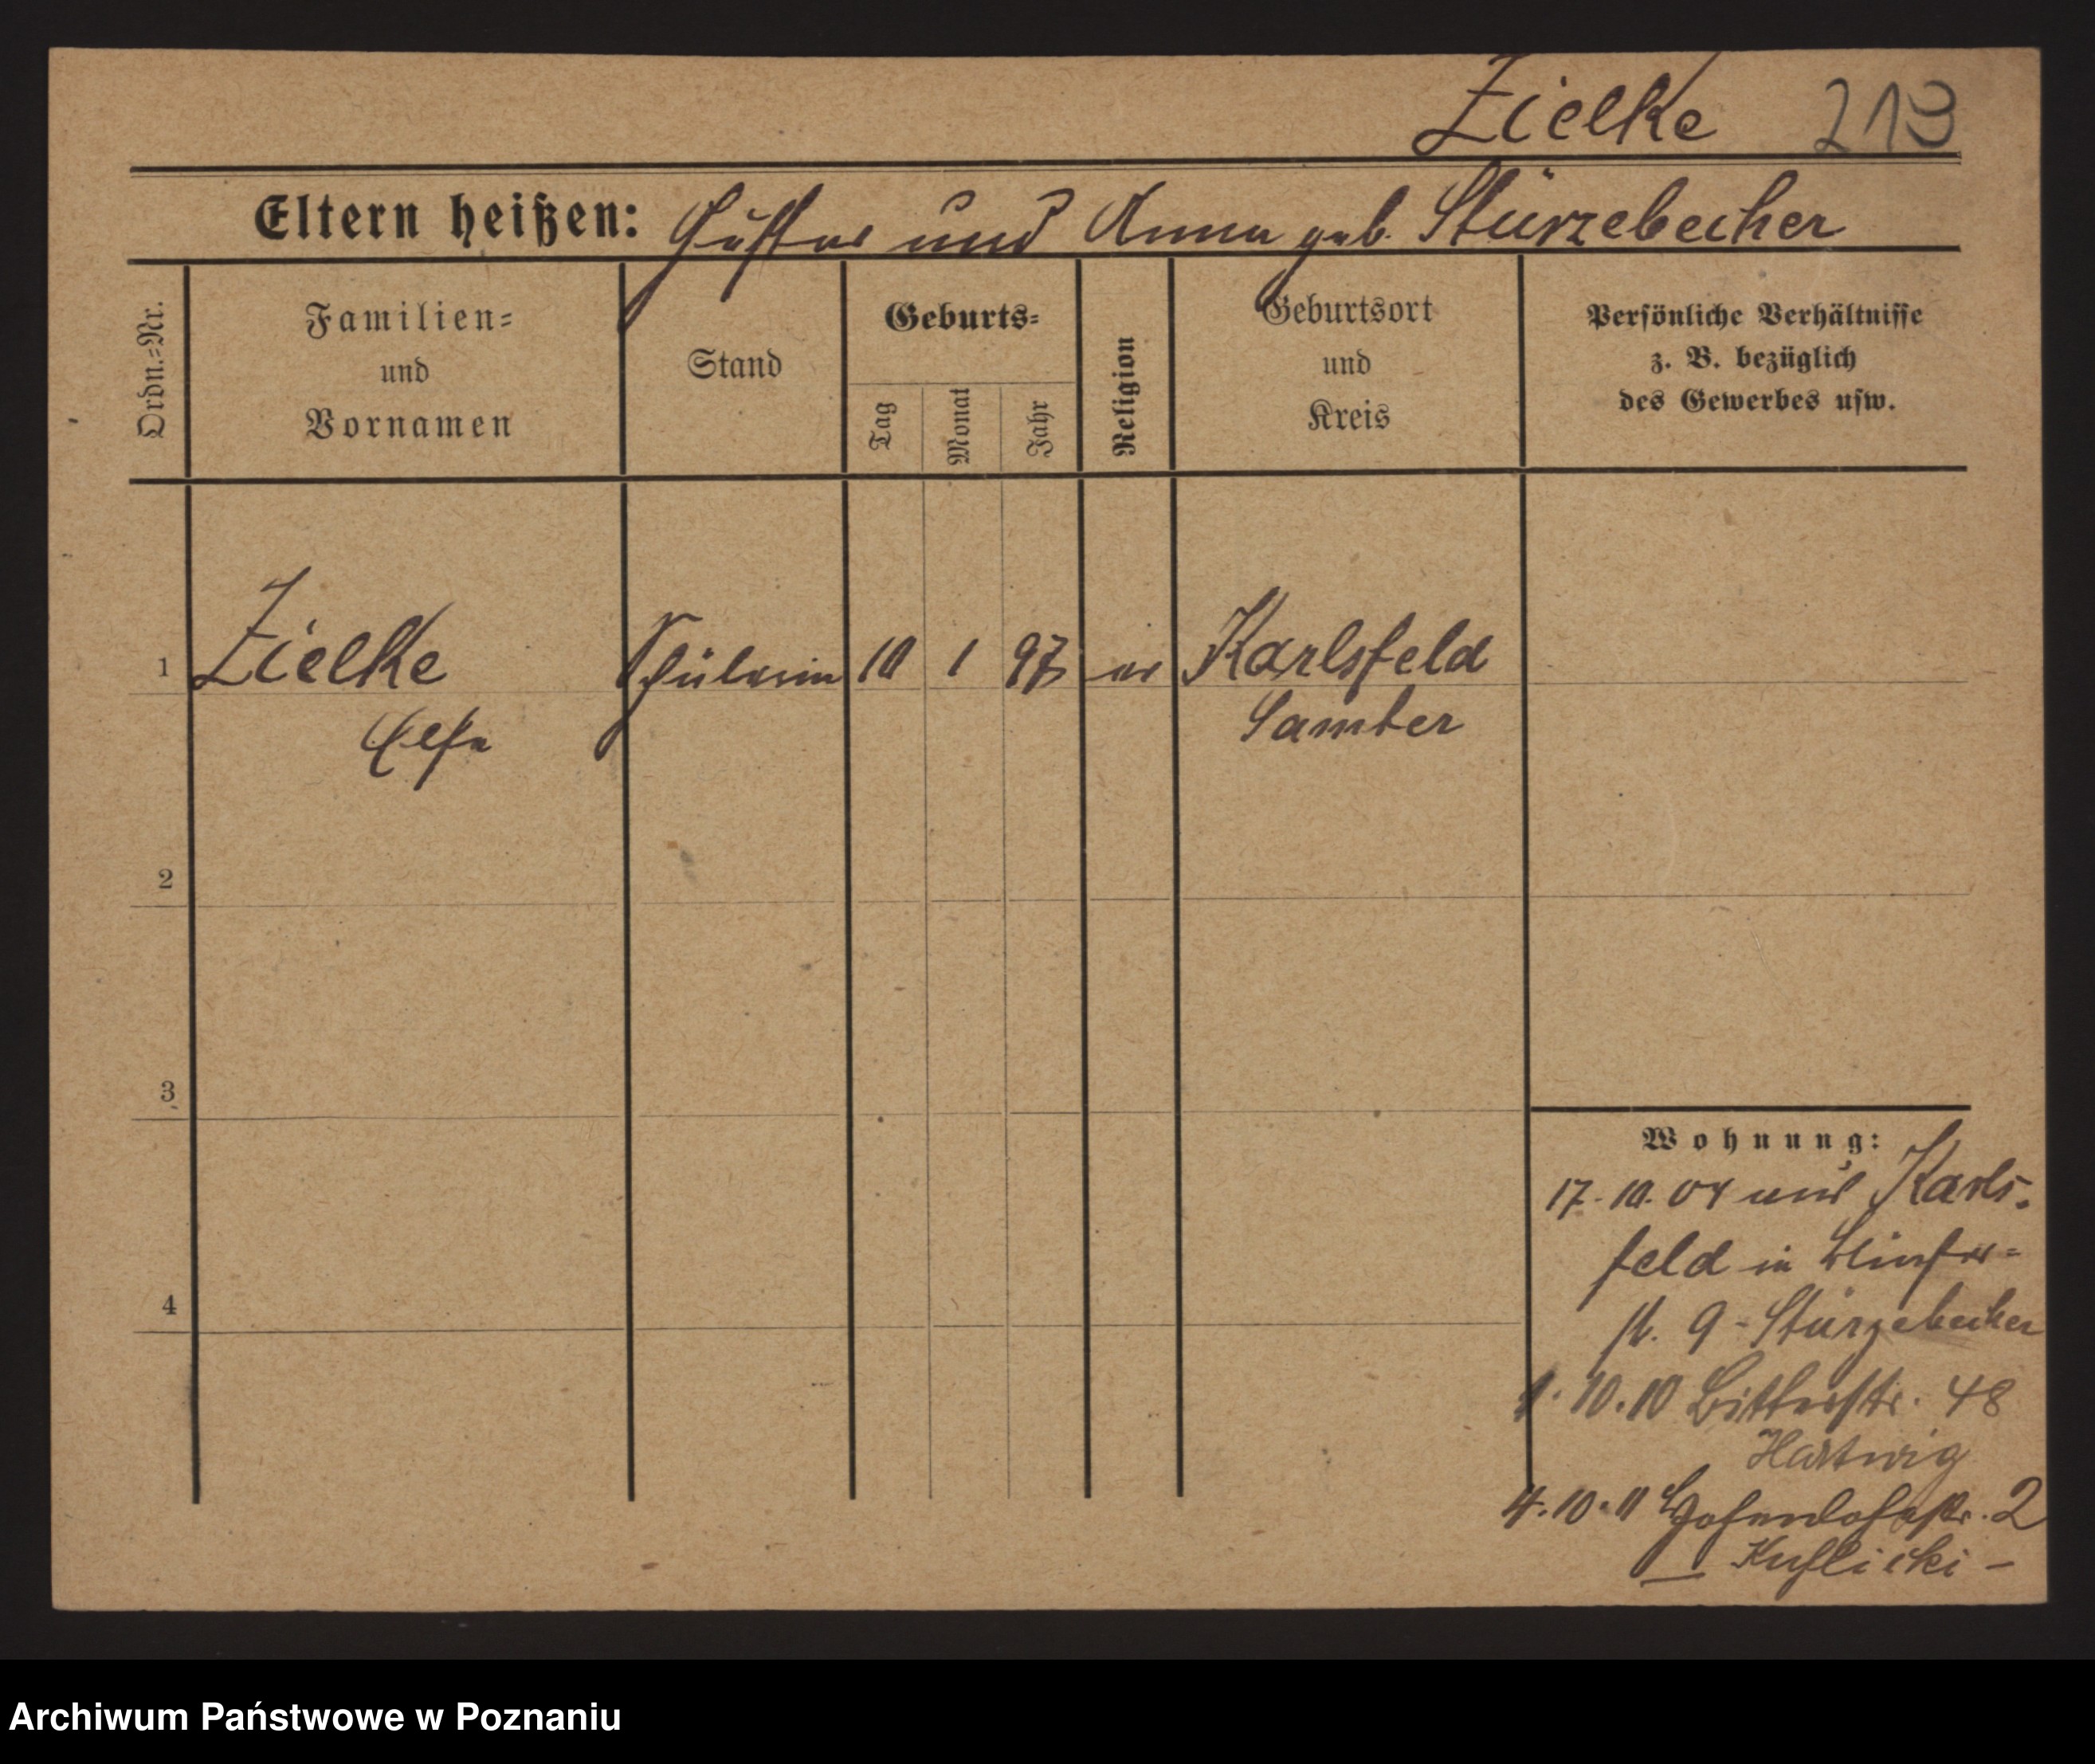 Zielke 213
Eltern heißen: Gustav und Anna geb. Stürzebecher
Ordn.=Nr.
Familien=
und
Vornamen
Stand
Geburts=
Tag
Monat
Jahr
Religion
Geburtsort
und
Kreis
Persönliche Verhältnisse
z. B. bezüglich
des Gewerbes usw.
1 Zielke Schülerin 10 1 97 ev Karlsfeld
Elsa Samter
2
3
4
Wohnung:
17. 10. 04 aus Karls-
feld in
str. 9 - Stürzebecher
1. 10. 10 Ritterstr. 48
Hartwig
4. 10. 11 Hohenlohestr. 2
Archiwum Państwowe w Poznaniu